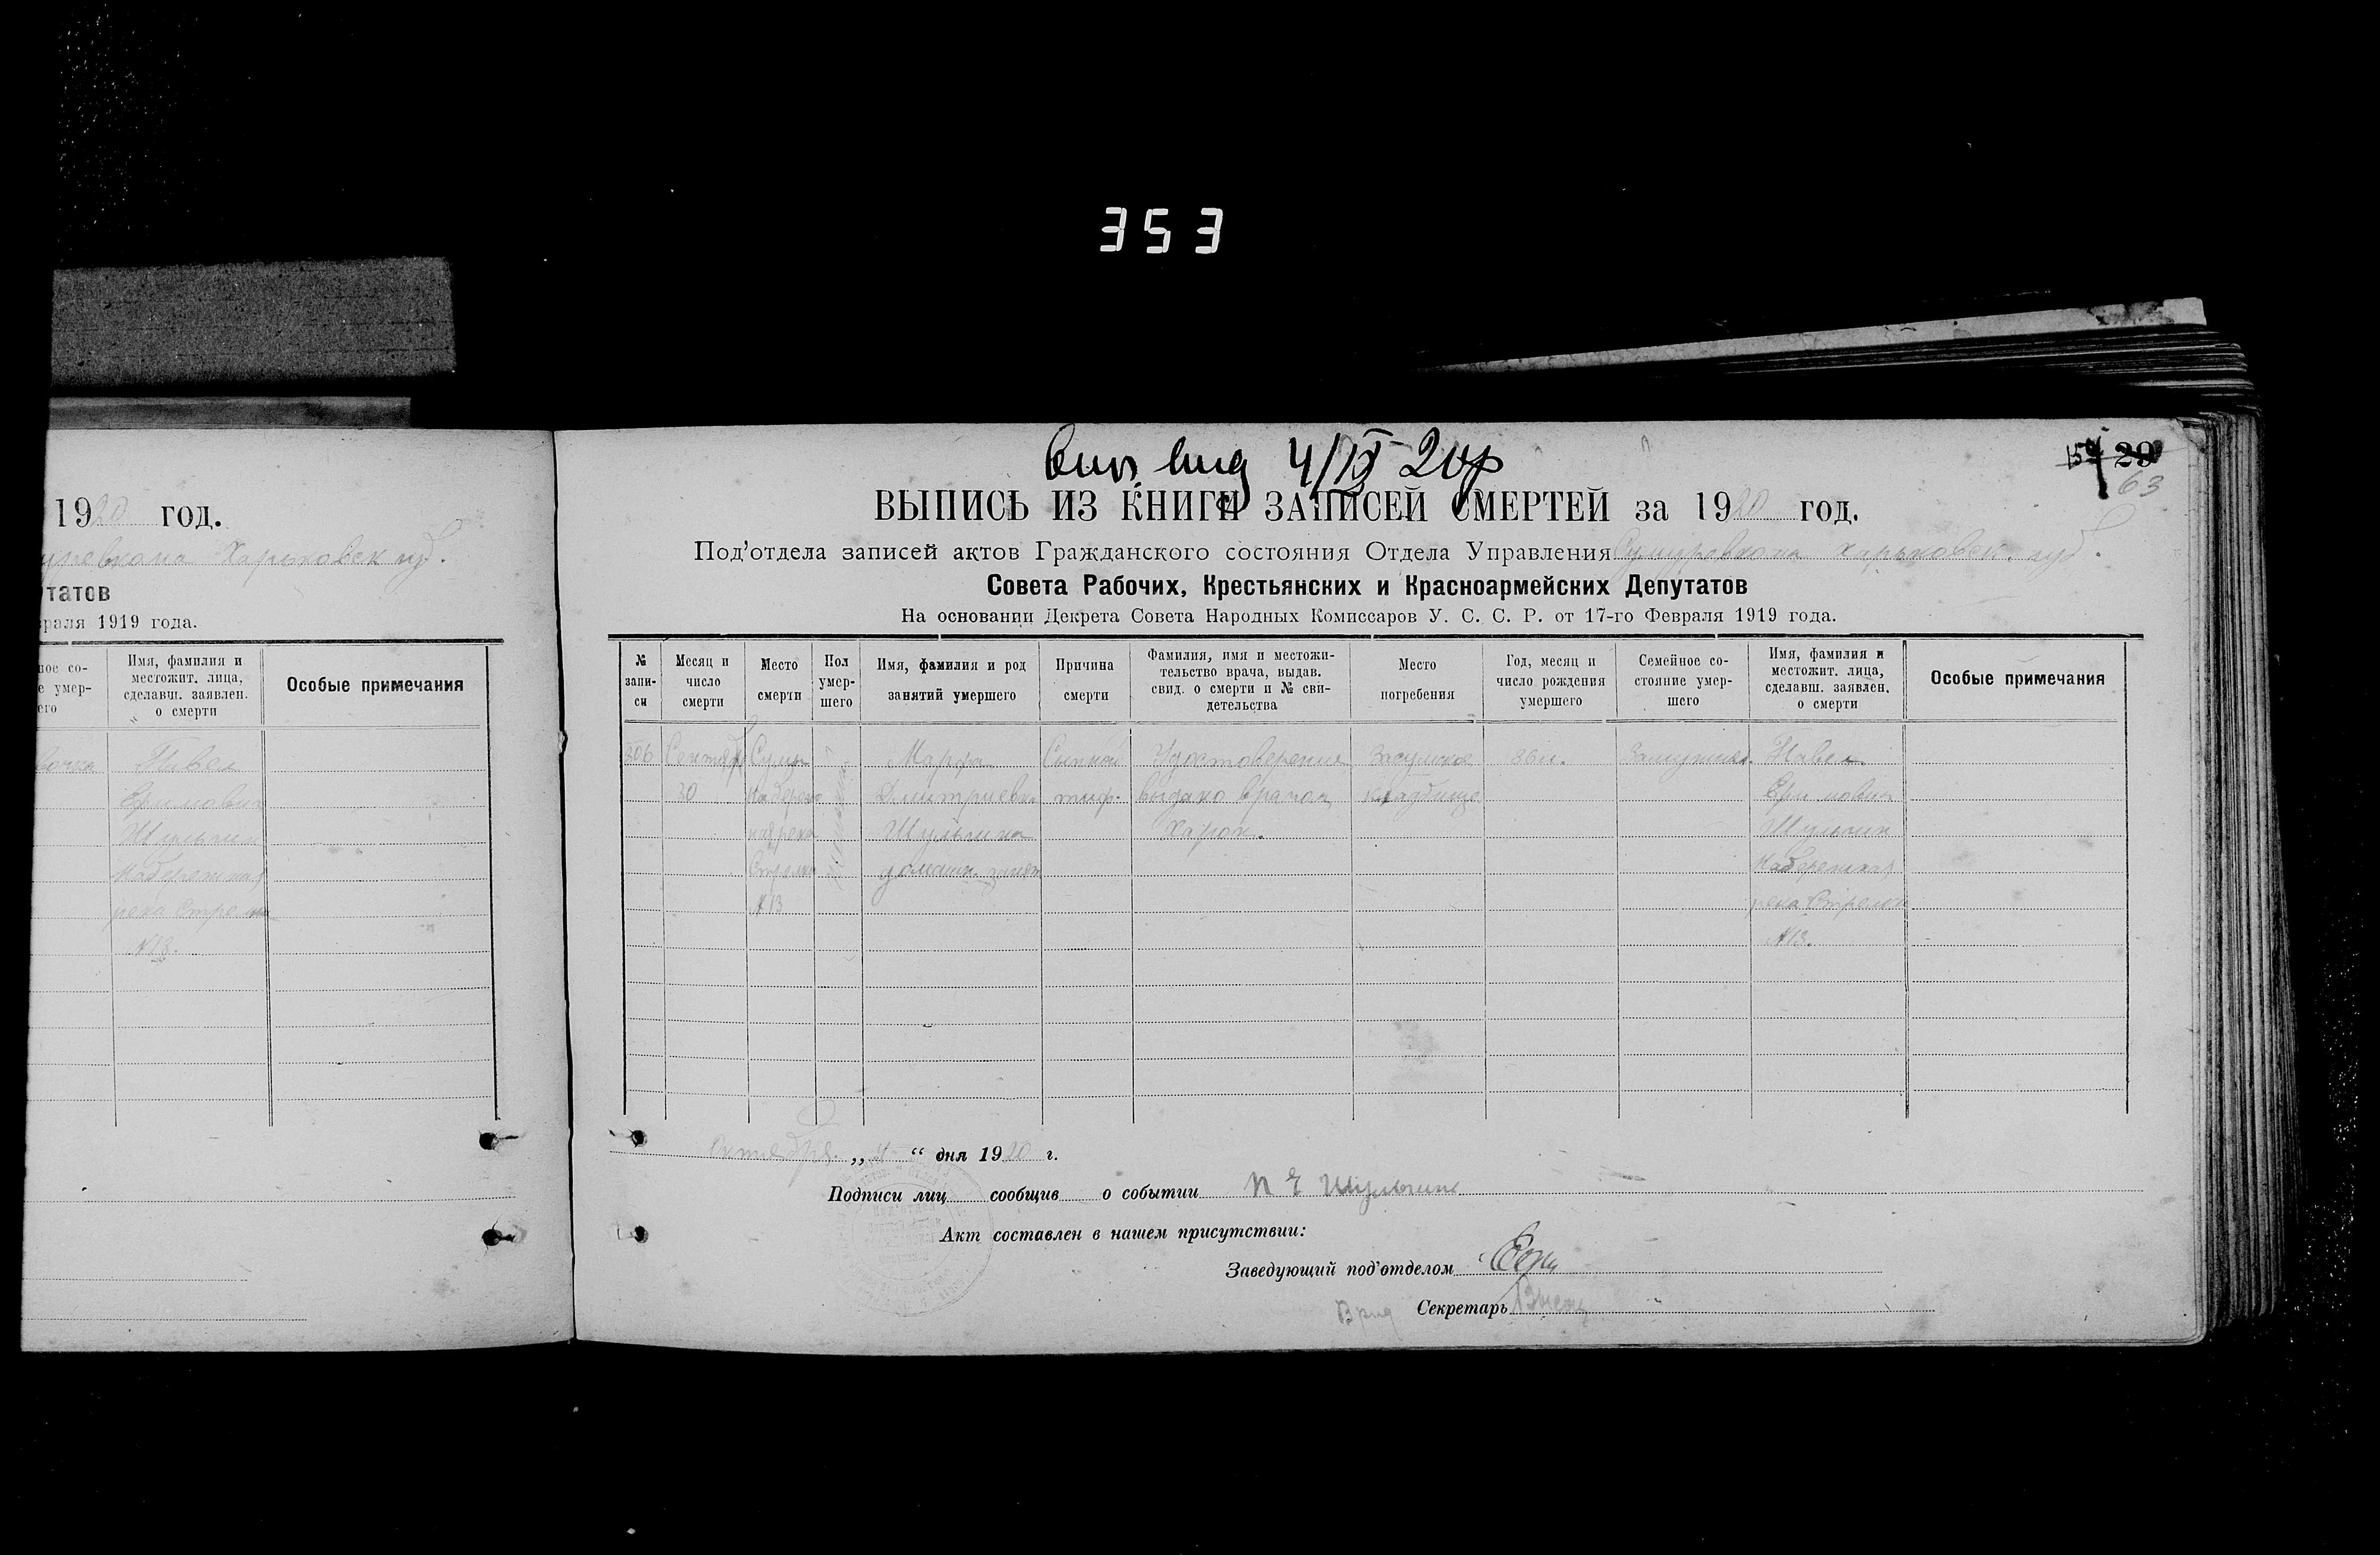 353
1920 год.
Харьковск губ.
татов
враля 1919 года.
ное со-
е умер-
его
Имя, фамилия и
местожит. лица,
сделавш. заявлен.
о смерти
Особые примечания
Павел
Шульгин
Набережная
река Стрелка
№ 13.
4/IX 20
29
63
ВЫПИСЬ ИЗ КНИГИ ЗАПИСЕЙ СМЕРТЕЙ за 1920 год.
Под'отдела записей актов Гражданского состояния Отдела Управления Сумуревкома Харьковск. губ.
Совета Рабочих, Крестьянских и Красноармейских Депутатов
На основании Декрета Совета Народных Комиссаров У. С. С. Р. от 17-го Февраля 1919 года.
№ запи- си
Месяц и число смерти
Место смерти
Пол умер- шего
Имя, фамилия и род занятий умершего
Причина смерти
Фамилия, имя и местожи- тельство врача, выдав. свид. о смерти и № сви- детельства
Место погребения
Год, месяц и число рождения умершего
Семейное со- стояние умер- шего
Имя, фамилия и местожит. лица, сделавш. заявлен. о смерти
Особые примечания
306 Сентябр Сумы Марфа Сыпной Удостоверение Засумское 36 л. Замужняя. Павел
30 Набереж Дмитриевна тиф. выдано врачом кладбище
ная река Шульгина Шульгин
Стрелка домашн. занят Набережная
№ 13 река Стрелка
№ 13.
Октября „ 4 “ дня 1920 г.
Подписи лиц сообщив о событии П Е Шульгин
Акт составлен в нашем присутствии:
Заведующий под'отделом
Врид Секретарь